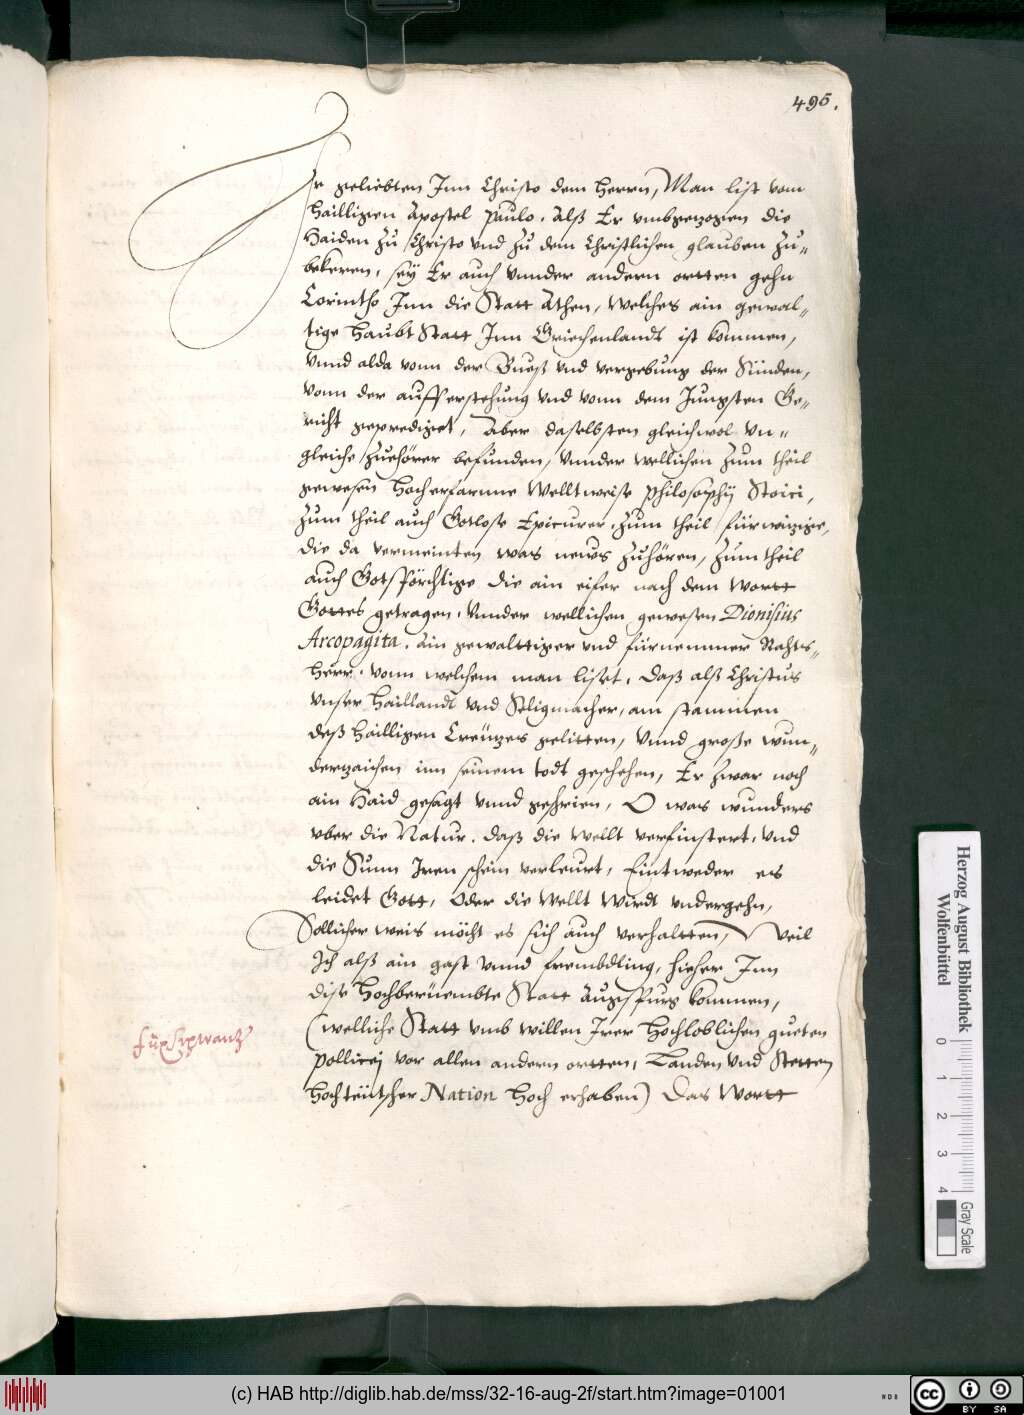 495.
Ir geliebten Inn Christo dem Herrn, Man list vom
Hailligen Apostel Paulo. Alß Er vmbgezogen die
Haiden zu Christo vnd zu dem Christlichen glauben zu„
bekeren, sey Er auch vnnder andern ortten gehn
Corintho Inn die Statt Athen, welches ain gewal„
tige Haubt Statt Inn Griechenlandt ist kommen,
Vnnd alda vonn der Bueß vnd vergebung der Sünden,
vonn der aufferstehung vnd vonn dem Jungsten Ge„
richt geprediget, Aber daselbsten gleichwol vn„
gleiche zuehörer befunden, vnnder wellichen zum theil
gewesen hocherfarnne Welltweise Philosophij Stoici,
zum theil auch Gotlose Epicurer, zum theil fürwizige,
die da vermeinten was news zuhören, zum theil
auch Gotsförchtige die ain eifer nach dem Wortt
Gottes getragen, vnnder wellichen gewesen Dionisius
Areopagita. Ain gewalttiger vnd fürnemmer Rahts„
Herr, vonn welchem man liset, daß alß Christus
vnser Haillandt vnd Seligmacher, am stammen
deß hailligen Creützes gelitten, Vnnd große wun„
derzaichen inn seinem todt geschehen, Er zwar noch
ain Haid gesagt vnnd geschrien, O was wunders
vber die Natur, daß die Wellt verfinstert, vnd
die Sunn Iren schein verleurt, Eintweder es
leidet Gott, oder die Wellt wirdt vndergehn,
Sollicher weis möcht es sich auch verhaltten, Weil
Ich alß ain gast vnnd frembdling, hieher Inn
dise Hochberüembte Statt Augspurg kommen,
(welliche Statt vmb willen Irer Hochloblichen gueten
Pollicej vor allen andern ortten, Landen vnd Stetten
Hochteütscher Nation hoch erhaben) Das Wortt
Füxschwantz
Herzog August Bibliothek
Wolfenbüttel
0 1 2 3 4
Gray Scale
(c) HAB http://diglib.hab.de/mss/32-16-aug-2f/start.htm?image=01001
WDB
cc BY SA